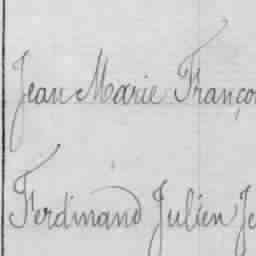 Jean Marie Franço
Ferdinand Julien Je